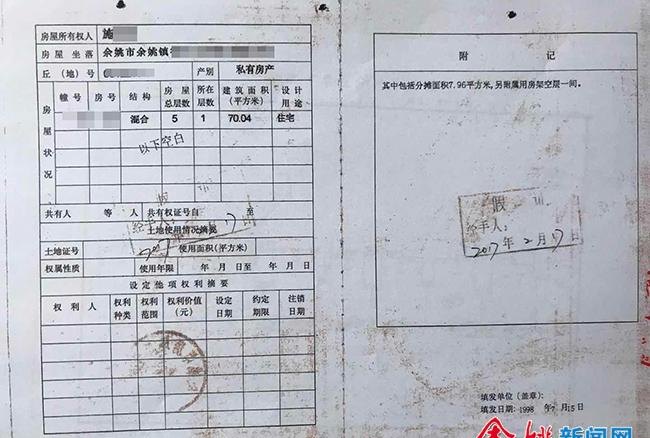 房屋所有权人 施
房屋坐落 余姚市余姚镇
丘(地)号 产别 私有房产
房屋状况
幢号 房号 结构 房屋总层数 所在层数 建筑面积(平方米) 设计用途
混合 5 1 70.04 住宅
以下空白
共有人 等 人 共有权证号自 至
土地使用情况摘要
土地证号 使用面积(平方米)
权属性质 使用年限 年 月 日至 年 月 日
设定他项权利摘要
权利人 权利种类 权利范围 权利价值(元) 设定日期 约定期限 注销日期
假
经手人:
2017 17
附 记
其中包括分摊面积7.96平方米,另附属用房架空层一间。
假
经手人:
2017年2月17日
填发单位(盖章):
填发日期:1998 年7月15日
余姚新闻网